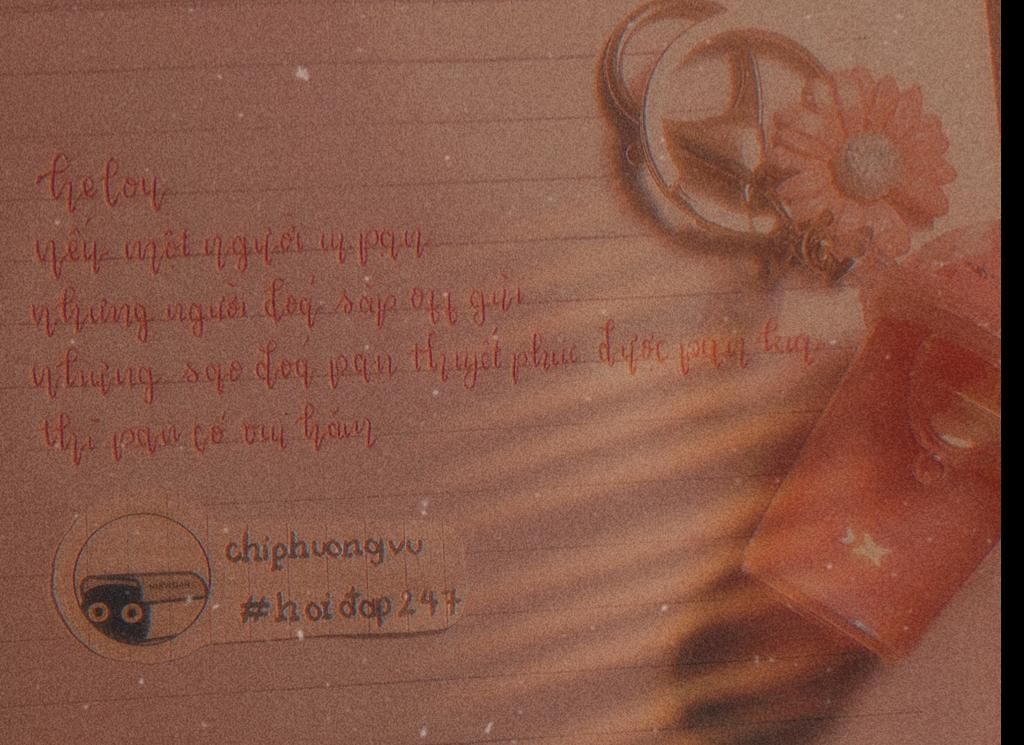 heloy
nếu một người iu pạn
nhưng người đoá sắp off gùi
nhưng sao đoá pạn thuyết phục được pạn kia
thì pạn có vui hăm
chiphuongvu
#hoiđap247